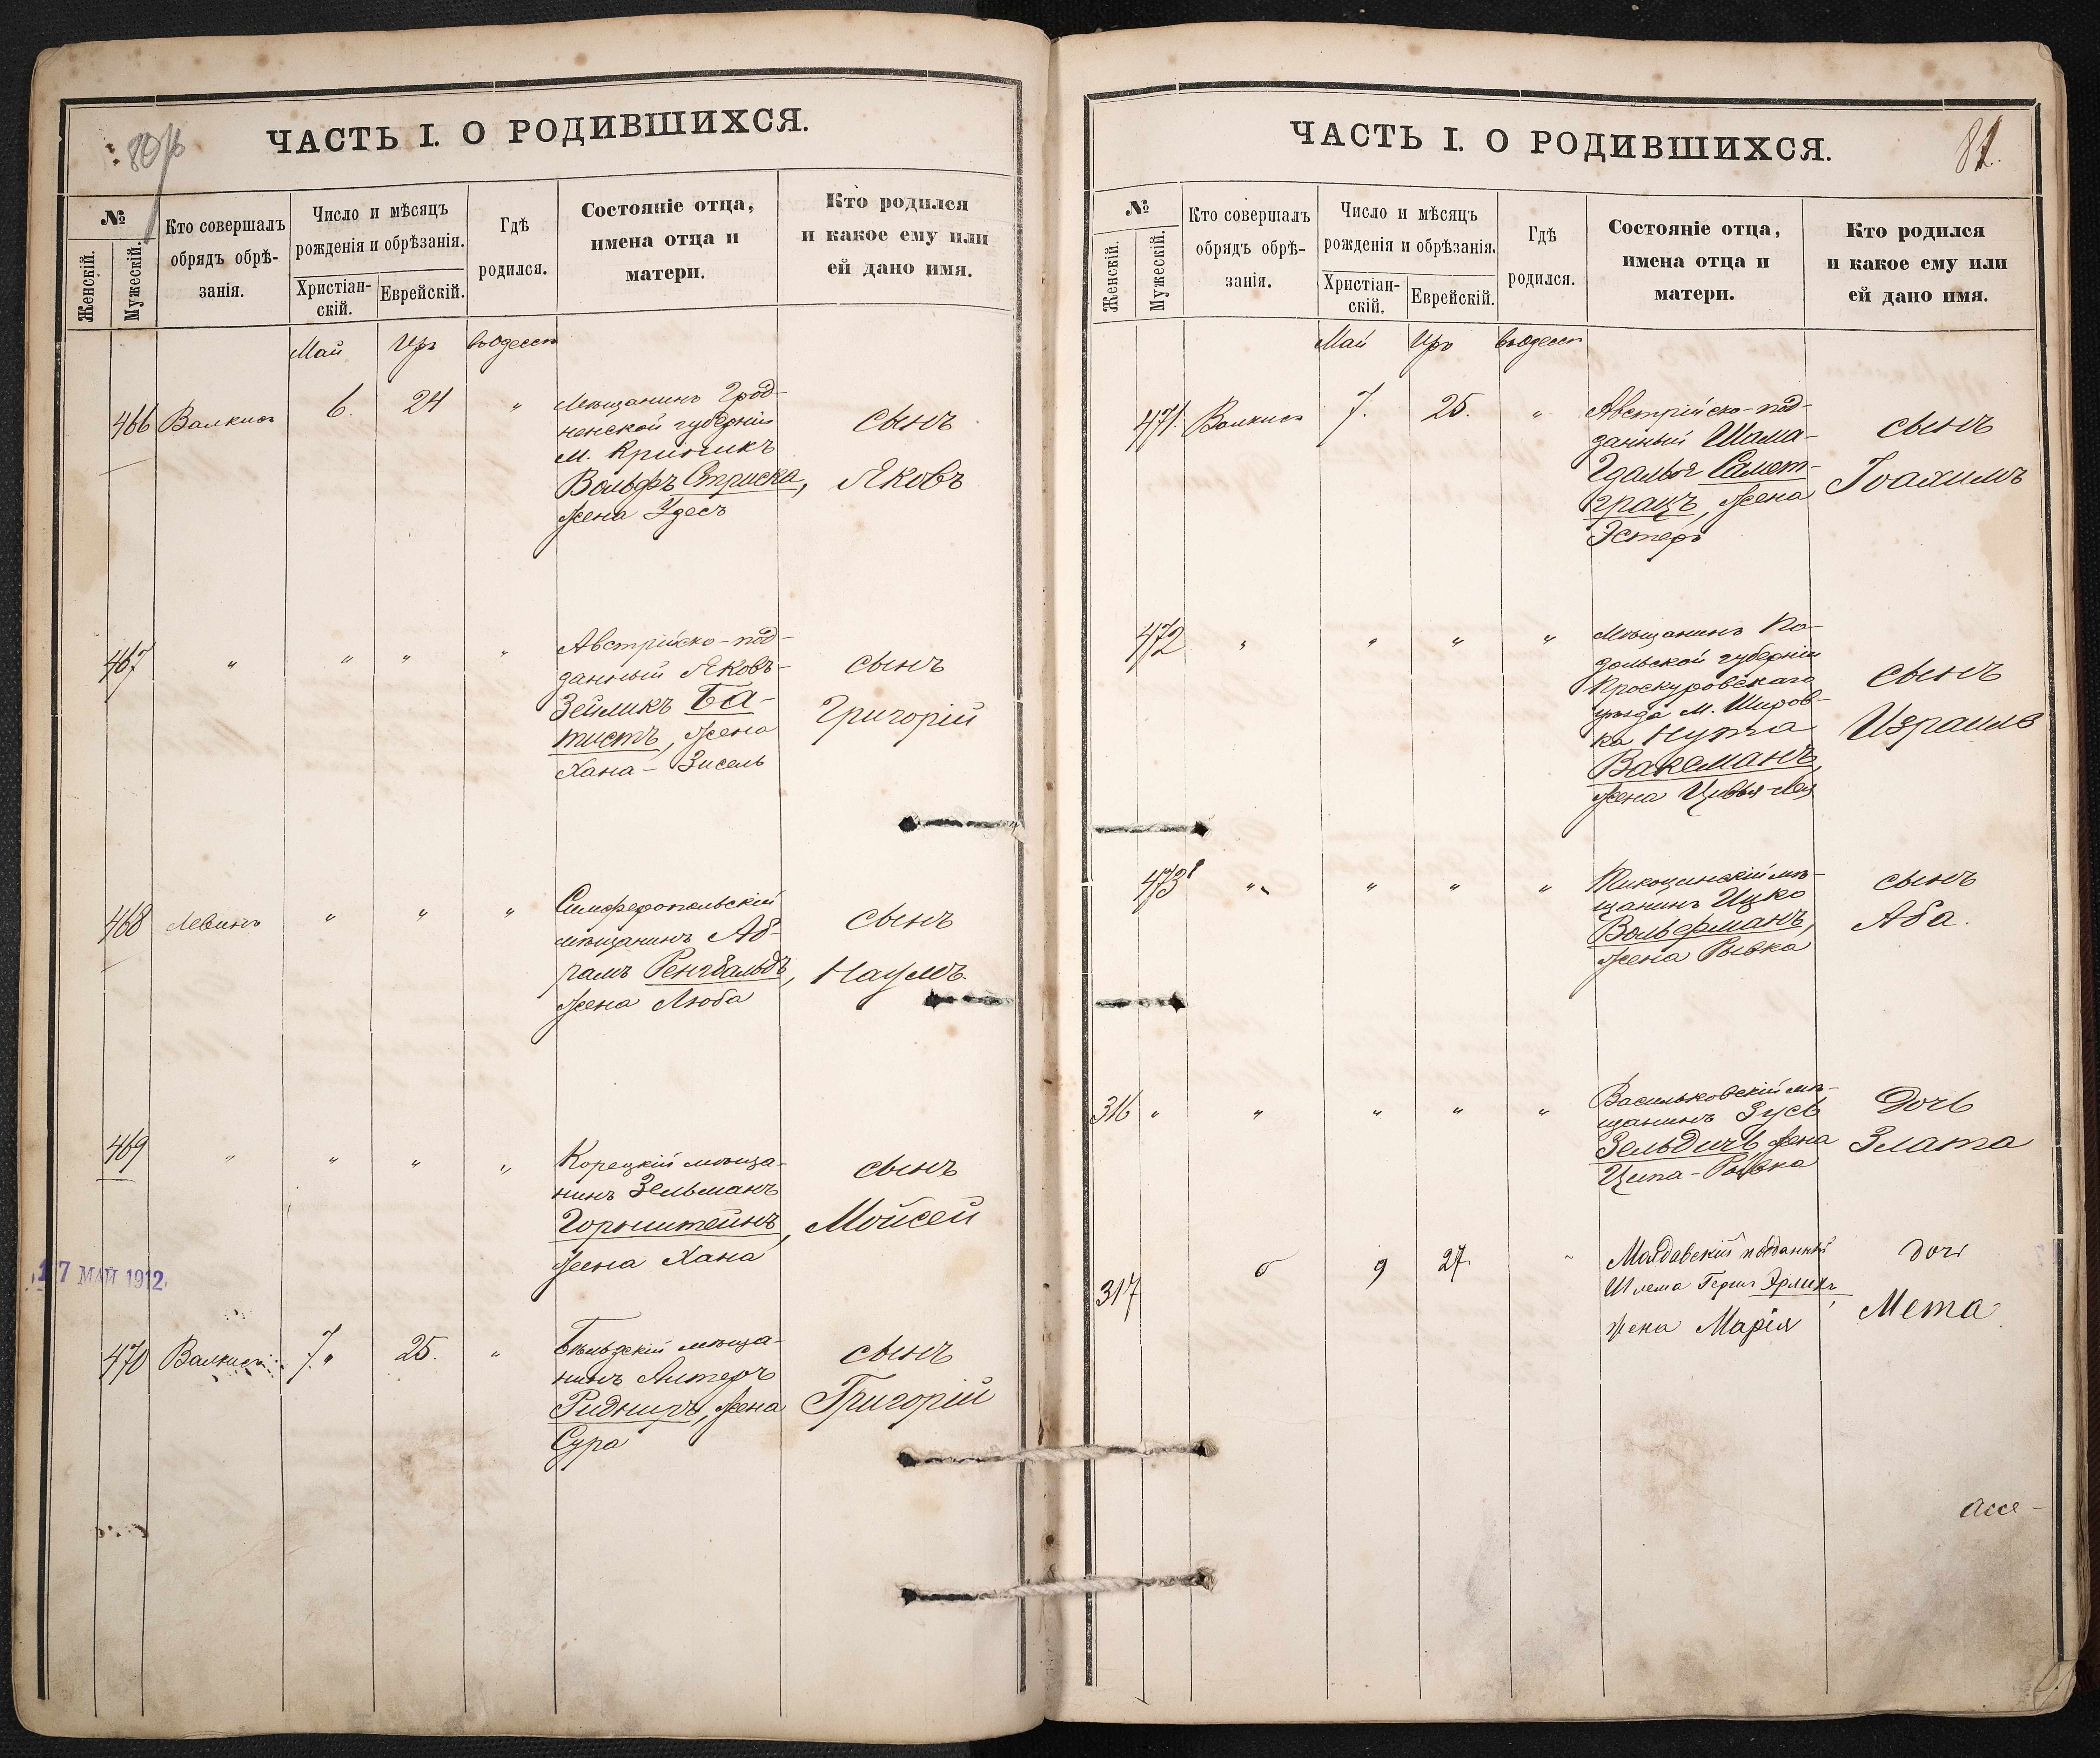 80/б
ЧАСТЬ I. О РОДИВШИХСЯ.
№
Женскій.
Мужескій.
Кто совершалъ
обрядъ обрѣ-
занія.
Число и мѣсяцъ
рожденія и обрѣзанія.
Христіан-
скій.
Еврейскій.
Гдѣ
родился.
Состояніе отца,
имена отца и
матери.
Кто родился
и какое ему или
ей дано имя.
Май Иръ въ Одессѣ
466 Валкисъ 6. 24 "
Мѣщанинъ Грод-
ненской губерніи
м. Криникъ
Вольфъ Стриска,
жена Удесъ
сынъ
Яковъ
467 " " " "
Австрійско-под-
данный Яковъ-
Зейликъ Ба-
тистъ, жена
Хана-Зисель
сынъ
Григорій
468 Левинъ " " "
Симферопольскій
мѣщанинъ Аб-
рамъ Ренгвальдъ,
жена Люба
сынъ
Наумъ.
469 " " " "
Корецкій мѣща-
нинъ Зельманъ
Горнштейнъ,
жена Хана
сынъ
Мойсей
17 МАЙ 1912
470 Валкисъ 7. 25. "
Бѣльзскій мѣща-
нинъ Алтеръ
Ридниръ, жена
Сура
сынъ
Григорій
ЧАСТЬ I. О РОДИВШИХСЯ.
81.
№
Женскій.
Мужескій.
Кто совершалъ
обрядъ обрѣ-
занія.
Число и мѣсяцъ
рожденія и обрѣзанія.
Христіан-
скій.
Еврейскій.
Гдѣ
родился.
Состояніе отца,
имена отца и
матери.
Кто родился
и какое ему или
ей дано имя.
Май Иръ въ Одессѣ
471. Валкисъ 7. 25. "
Австрійско-под-
данный Шама-
Гдалья Самет-
грацъ, жена
Эстеръ
сынъ
Іоахимъ
472 " " " "
Мѣщанинъ По-
дольской губерніи
Проскуровскаго
уѣзда м. Шаров-
ка Нута
Ваксманъ,
жена Цивья-Лея
сынъ
Израиль
473 " " " "
Тикоцинскій мѣ-
щанинъ Ицко
Вольфманъ,
жена Рывка
сынъ
Аба.
316 " " " " "
Васильковскій мѣ-
щанинъ Зусь
Зельдичъ жена
Ципа-Рывка
Дочь
Злата
317 9 27 "
Молдавскій подданный
Шлема Герш Эрлихъ,
жена Марія
дочь
Мета